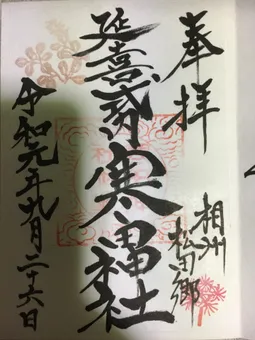 奉拝
相州
松田郷
延喜式内寒田神社
令和元年九月二十六日